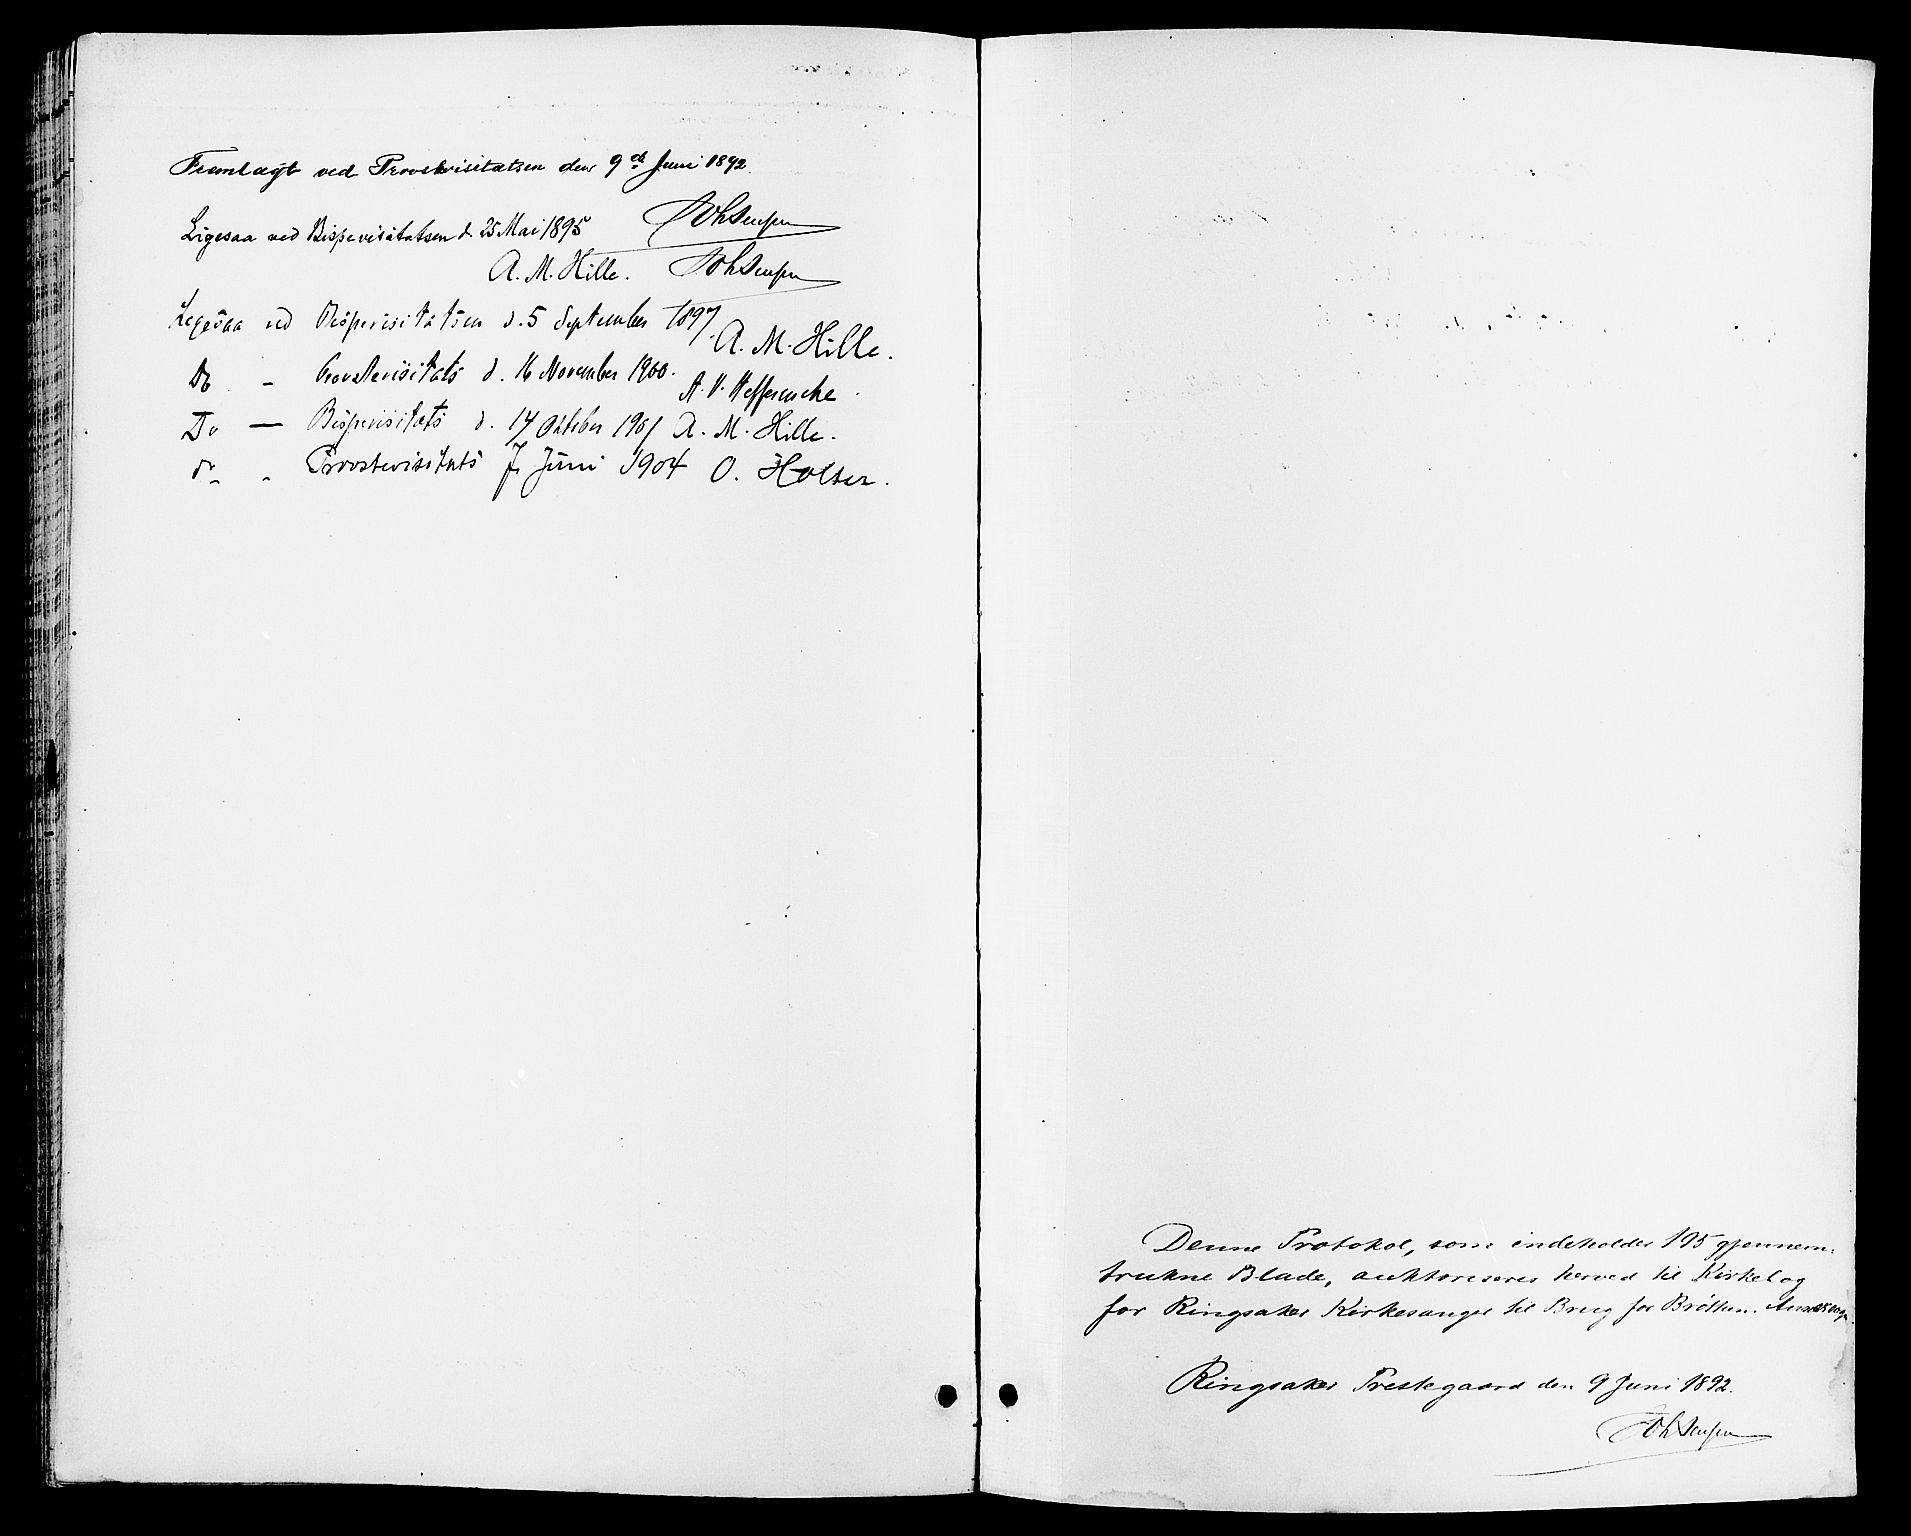 Fremlagt ved Provstevisitatsen den 9de Juni 1892.
Ligesaa ved Bispevisitatsen d. 25 Mai 1895
A. M. Hille.
Ligesaa ved Bispevisitatsen d. 5 September 1897. A. M. Hille.
Do - Provstevisitats d. 16 November 1900.
Do — Bispevisitats d. 14 Oktober 1901 A. M. Hille.
do " Provstevisitats 7 Juni 1904 O. Holsen.
Denne Protokol, som indeholder 195 gjennem-
trukne Blade, auktoriseres herved til Kirkebog
for Ringsaker Kirkesanger til Brug for Brøttum
Ringsaker Prestegaard den 9 Juni 1892.